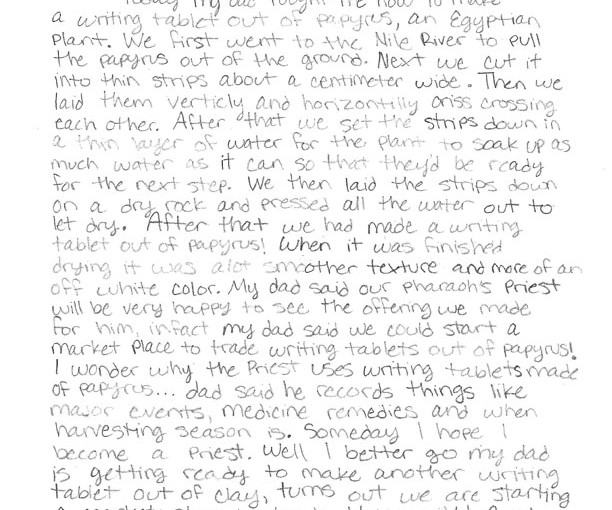 Today my dad taught me how to make
a writing tablet out of papyrus, an Egyptian
Plant. We first went to the Nile River to pull
the papyrus out of the ground. Next we cut it
into thin strips about a centimeter wide. Then we
laid them verticly and horizontilly criss crossing
each other. After that we set the strips down in
a thin layer of water for the plant to soak up as
much water as it can so that they'd be ready
for the next step. We then laid the strips down
on a dry rock and pressed all the water out to
let dry. After that we had made a writing
tablet out of papyrus! When it was finished
drying it was alot smoother texture and more of an
off white color. My dad said our pharaoh's Priest
will be very happy to see the offering we made
for him, infact my dad said we could start a
market place to trade writing tablets out of papyrus!
I wonder why the Priest uses writing tablets made
of papyrus... dad said he records things like
major events, medicine remedies and when
harvesting season is. Someday I hope I
become a Priest. Well I better go my dad
is getting ready to make another writing
tablet out of clay, turns out we are starting